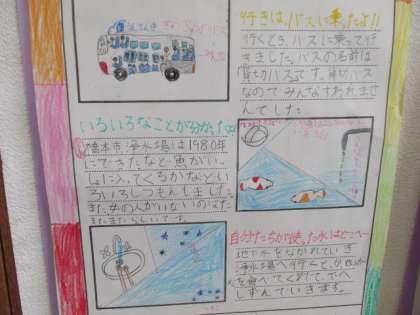 行きは、バスに乗ったよ!!
行くとき、バスに乗って行
きました。バスの名前は
貸切バスです。貸切バス
なのでみんな
んでした。
いろいろなことが分かった
橋本市浄水場は1980年
にできたなど魚がい
に入ってくるかなどい
ろいろしつもんをしました。
また女の人がいないのはた
またまらしいです。
自分たちが使った水はどこへ
地下水をながれていき
浄水場へ行くと、
を食べてくれて、下へ
しずんでいきます。